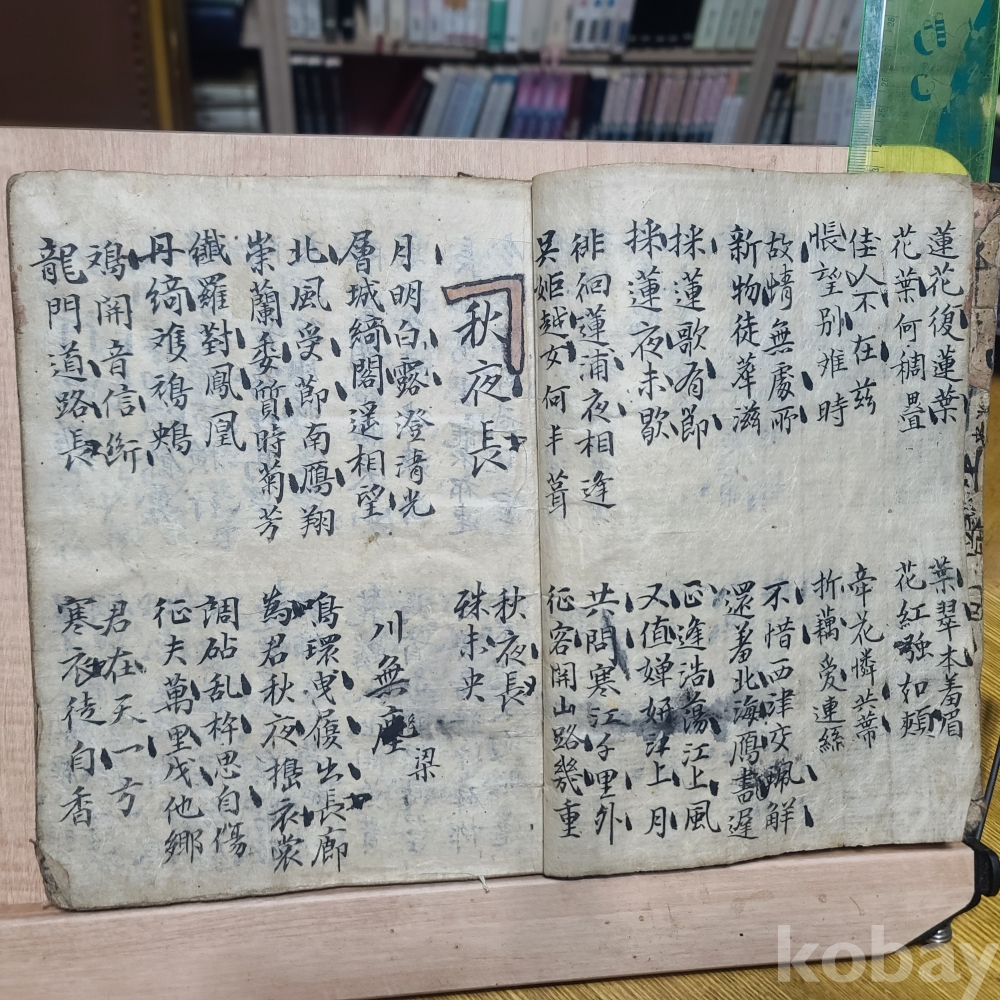 蓮花復蓮葉 葉翠本羞眉
花葉何稠疊 花紅強如頰
佳人不在茲 牽花憐共蒂
悵望別難時 折藕愛連絲
故情無處所 不惜西津交珮解
新物徒華滋 還羞北海鴈書遲
採蓮歌有節 正逢浩蕩江上風
採蓮夜未歇 又值嬋娟江上月
徘徊蓮浦夜相逢 共問寒江千里外
吳姬越女何丰茸 征客關山路幾重
秋夜長
秋夜長
殊未央
月明白露澄清光
層城綺閣遙相望 川無塵 梁
北風受節南鴈翔 鳴環曳履出長廊
崇蘭委質時菊芳 為君秋夜擣衣裳
纖羅對鳳凰 調砧乱杵思自傷
丹綺雙鴛鴦 征夫萬里戍他鄉
開音信斷 君在天一方
龍門道路長 寒衣徒自香
kobay